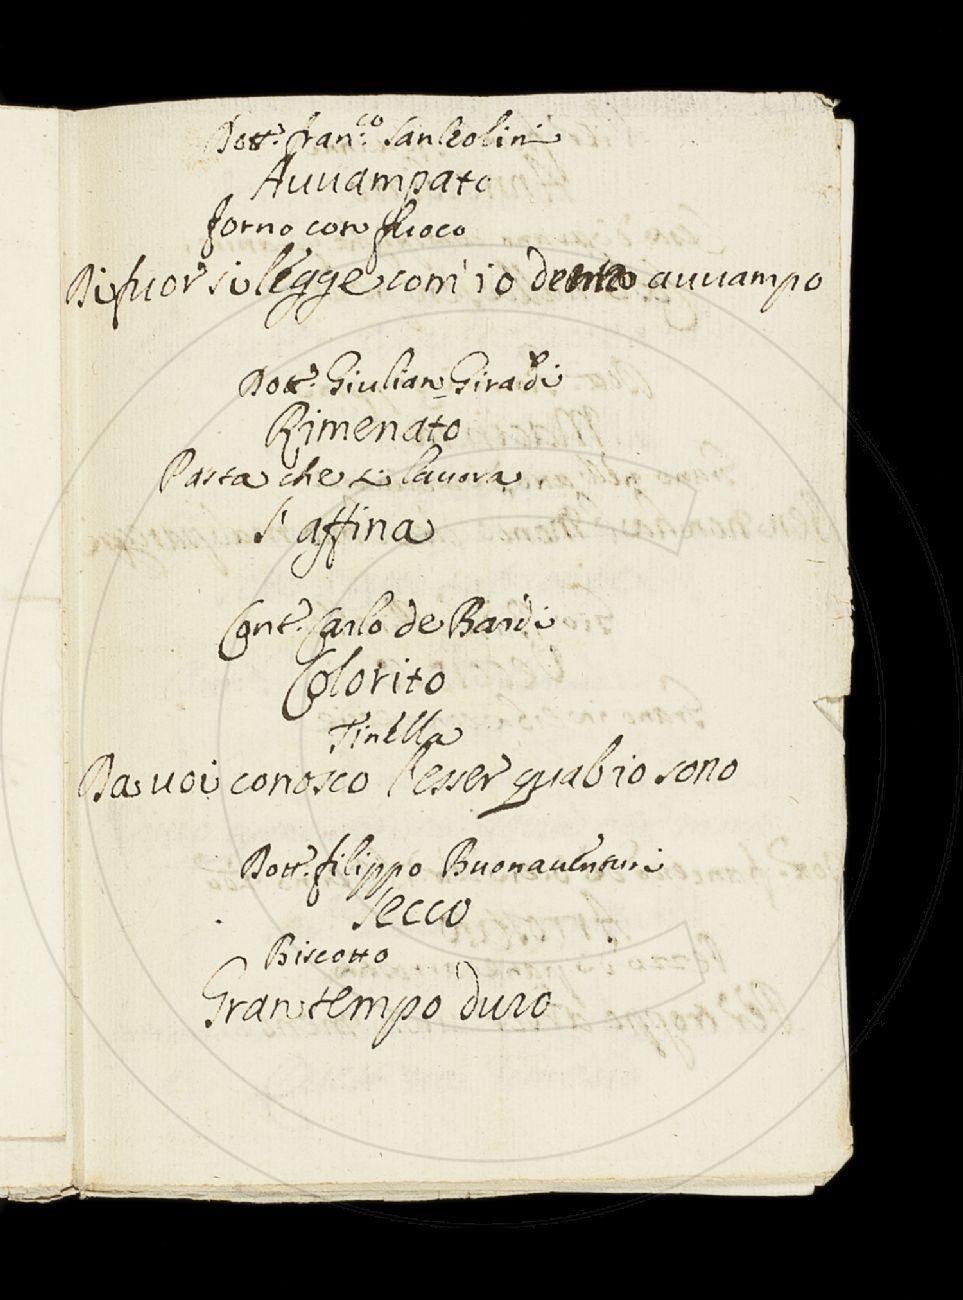 Dott.r fran.co Sanleolini
Auuampato
forno con fuoco
Di fuor si legge com' io dentro auuampo
Dott.r Giulian Giraldi
Rimenato
Pasta che si lauora
S' affina
Cont.e Carlo de Bardi
Colorito
Tinella
Da uoi conosco l'esser qual io sono
Dott.r filippo Buonauenturi
Secco
Biscotto
Gran tempo duro